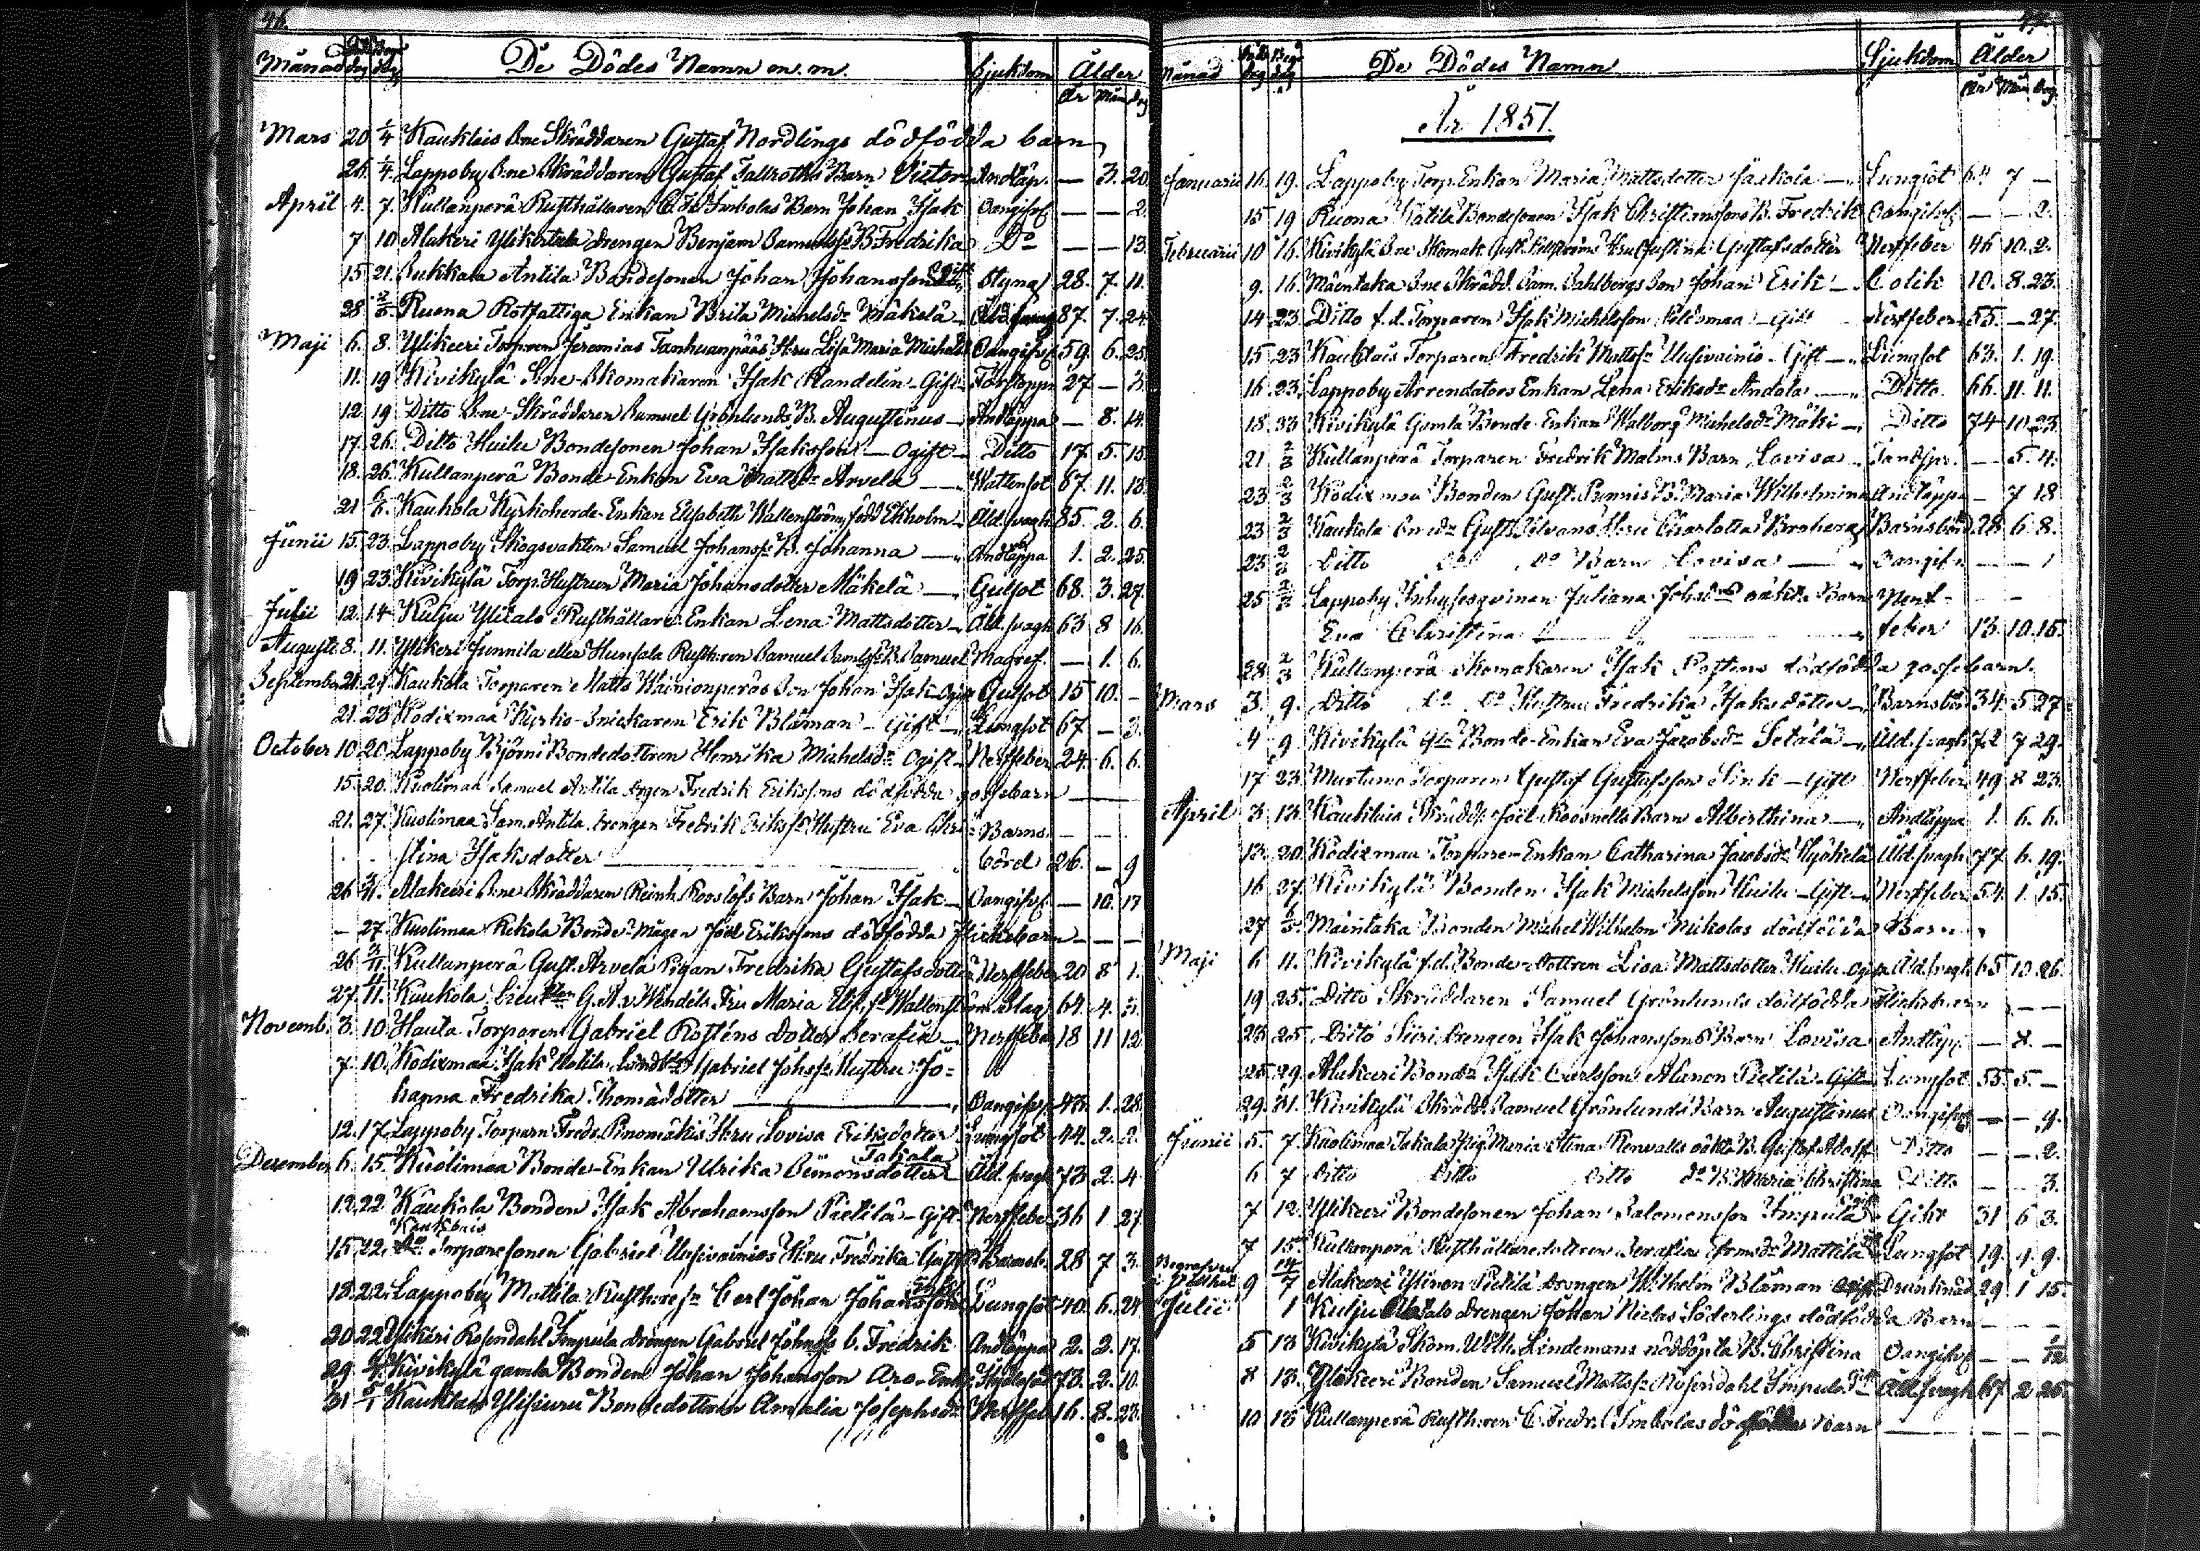 46.
Månad Död dag Begr dag De Dödes Namn m. m. Sjukdom Ålder
År Mån Dag
Mars 20 1/4 Kauklais S:ne Skräddaren Gustaf Nordlings dödfödda barn
26. 1/4 Lappoby S:ne Skräddaren Gustaf Fallroths Barn Victor Andtäp. — 3. 20.
April 4. 7. Kullanperä Rusthållaren C. Fr. Imbolas Barn Johan Isak Oangifv. — — 2.
7 10 Alakeri Ylikertala drengen Benjam Samuelss. B. Fredrika D:o — — 13.
15 21. Sukkala Antila Bondesonen Johan Johansson Ogift Styng 28. 7. 11.
28 2/5 Ruona Rotfattiga Enkan Brita Michelsd:r Mäkelä Ålderdom 87. 7. 24.
Maji 6. 8. Ylikeeri Torparen Jeremias Tanhuanpääs Hru Lisa Maria Michelsd. Oangifv. 59. 6. 25.
11. 19 Kivikylä S:ne Skomakaren Isak Randelin Gift Förstoppn. 27 — 3.
12 19 Ditto S:ne Skräddaren Samuel Grönlunds B. Augustinus Andtäppa — 8. 14.
17. 26. Ditto Huilu Bondesonen Johan Isaksson — Ogift Ditto 17 5. 15
18. 26 Kullanperä Bonde Enkan Eva Mattsd:r Arvela — Wattensot 67. 11. 18.
21 2/6. Kauhola Kyrkoherde Enkan Elisabeth Wallenström, född Ekholm Åld. svagh. 85. 2. 6.
Junii 15. 23. Lappoby Skogsvakten Samuel Johanss. B. Johanna — Andtäppa 1. 2. 25.
19 23. Kivikylä Torp. Hustrun Maria Johansdotter Mäkelä — Gulsot 68. 3. 27.
Julii 12. 14 Kulju Ylitalo Rusthållare Enkan Lena Mattsdotter Åld. svagh. 63 8 16.
Augusti 8. 11. Ylikeri Junnila eller Hunsala Rusth:ren Samuel Samlss. B. Samuel Magref. — 1. 6.
September 21. 27. Kauhola Torparen Matts Wainionperäs Son Johan Isak Ogift Gulsot 15 10. —
21. 23 Kodixmaa Kyrko-Snickaren Erik Blåman Gift Lungsot 67 — 3.
October 10 20. Lappoby Björni Bondedottren Henrika Michelsd:r Ogift Nerffeber 24. 6. 6.
15. 20. Kuolimaa Samuel Antila drgen Fredrik Erikssons dödfödda gossebarn —
21. 27. Kuolimaa Sam. Antila drengen Fredrik Erikss. Hustru Eva Chri= Barns= — —
stina Isaksdotter — börd 26. — 9
26 Alakeeri S:ne Skräddaren Reinh. Rooslöfs Barn Johan Isak Oangifv. — 10. 17
— 27 Kuolimaa Kekola Bonde-Mågen Joel Erikssons dödfödda flickebarn — — —
26 2/11. Kullanperä Gust. Arvela Pigan Fredrika Gustafsdotter Nerffeber 20 8 1.
27. 11. Kauhola Lieut:n G. A. v. Wendels Fru Maria Ulr. f. Wallenström Slag 64. 4. 3.
Novemb. 3. 10 Hauta Torparen Gabriel Rosténs Dotter Serafia Nerffeber 18 11 12
7. 10. Kodixmaa Isak Gabriel Johss. Hustru Jo=
hanna Fredrika Thomädotter — Oangifv. 43. 1. 28.
12. 17. Lappoby Torparn Fredr. Pinomäkis Hru Lovisa Eriksdotter Lungsot 44. 2. 2.
December 6. 15. Kuolimaa Bonde-Enkan Ulrika Simonsdotter Takala Åld. svagh. 73 2. 4
12. 22 Kauhola Bonden Isak Abrahamsson Pietilä Gift Nerffeber 36 1 27
15. 22. Kauklais Torparesonen Gabriel Uusivainios Hru Fredrika Gustfsd. Barnsb. 28 7 3.
18. 22. Lappoby Mattila Rusth:res:n Carl Johan Johansson Lungsot 40. 6. 24.
20. 22. Ylikeri Rosendahl Impula drengen Gabriel Johnss. b. Fredrik Andtäppa 2. 2. 17.
29 Kivikylä gamla Bonden Johan Johansson Aro Enkl. 73. 2. 10.
31 5/1 Kauklais Ylisiuru Bondedottren Amalia Josephsd:r Nerffeb. 16. 8. 23.
47.
Månad Död dag Begr dag De Dödes Namn Sjukdom Ålder
År Mån Dag
År 1851.
Januarii 16. 19. Lappoby Torp. Enkan Maria Mattsdotter Jaskola — Lungsot 64 7 —
15 19 Ruona Katila Bondesonen Isak Christianssons B. Fredrik Oangifv. — — 2.
Februarii 10 16. Kivikylä S:ne Skomak. Gust. Hellströms Hru Justina Gustafsdotter Nerffeber 46 10. 2.
9. 16. Mäentaka S:ne Skrädd. Sam. Dahlbergs Son Johan Erik Colik 10. 8. 23.
14 23. Ditto f. d. Torparen Isak Michelsson Kildsmaa Gift Nerffeber 55. — 27.
15. 23 Kauklais Torparen Fredrik Mattss. Uusivainio Gift Lungsot 63. 1. 19.
16. 23. Lappoby Arrendators Enkan Lena Eriksd:r Andola Ditto 66. 11. 11.
18. 23 Kivikylä Gamla Bonde-Enkan Walborg Michelsd:r Mäki Ditto 74 10. 23.
21 2/3 Kullanperä Torparen Fredrik Malms Barn Lovisa Tandspr. — 5. 4.
23 2/3 Kodixmaa Bonden Gust. Punnis B. Maria Wilhelmina Andtäppa — 7 18
23 2/3 Kauhola Gust. Silvans Hru Charlotta Broberg Barnsbörd 28 6 8.
23 2/3 Ditto D:o D:o Barn Lovisa — Oangifv. — — 1
25 2/3 Lappoby Inhyseqvinnan Juliana Johsd:rs oäkta Barn Nerf- — —
Eva Christina — feber 13. 10. 15.
28 2/3 Kullanperä Skomakaren Isak Rostens dödfödda gossebarn.
Mars 3. 9. Ditto D:o D:o Hustru Fredrika Isaksdotter Barnsbörd 34. 5. 27.
4 9 Kivikylä Bonde-Enkan Eva Jacobsd:r Setälä Åld. svagh. 72 7 29.
17 23. Murtamo Torparen Gustaf Gustafsson Sink Gift Nerffeber 49 8 23.
April 3 13. Kauklais Skrädd. Joël Roosnells Barn Alberthina Andtäppa 1. 6. 6.
13. 20. Kodixmaa Torpare-Enkan Catharina Jacobsd:r Hyökelä Åld. svagh. 77 6. 19.
16 27. Kivikylä Bonden Isak Michelsson Huilu Gift Nerffeber 54. 1. 15.
27 Mäintaka Bonden Michel Wilhelm Nikolas dödfödda Barn
Maji 6 11. Kivikylä f. d. Bonde-dottren Lisa Mattsdotter Huilu Ogift Åld. svagh. 65 10. 26.
19 25. Ditto Skräddaren Samuel Grönlunds dödfödda Flickebarn — —
23 25. Ditto drengen Isak Johanssons Barn Lovisa Andtäpp. — 8. —
25. 29. Alakeeri Bond:n Isak Carlsson Alanen Pietilä Gift Lungsot 55. 5. —
29. 31. Kivikylä Skrädd. Samuel Grönlunds Barn Augustinus Oangifv. — — 9.
Junii 5. 7. Kuolimaa Takala Pig. Maria Stina Renvalls oäkta B. Gustaf Adolf Ditto — — 2.
6 7 Ditto Ditto Ditto d:o B. Maria Christina Ditto — — 3.
7 12. Ylikeeri Bondesonen Johan Salomonsson Impula Ogift Gikt 31 6 3.
7 15. Kullanperä Rusthållaredottren Serafia Mattila Lungsot 19. 9.
Begraven 9 14/7 Alakeeri Ylinen Pietilä drengen Wilhelm Blåman Ogift Drunknad 29 1 15.
Julii 1 Kulju drengen Johan Niclas Söderlings dödfödda Barn — — —
5 13 Kivikylä Skom. Wilh. Lindemans nöddöpta B. Christina Oangifv. — — 1/12
8 13. Ylikeeri Bonden Samuel Mattss. Rosendahl Impula Åld. svagh. 67 2 25.
10 13 Kullanperä Rusth:ren C. Fredr. Imbolas dödfödda Barn — — —